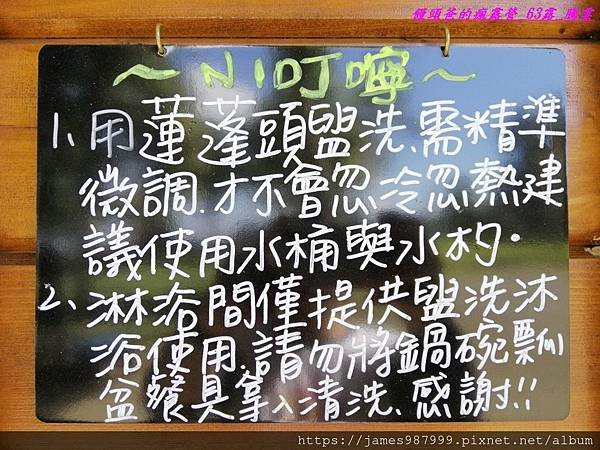 饅頭爸的瘋露營 63露 勝葉
～NI叮嚀～
1、用蓮蓬頭盥洗、需精準
微調、才不會忽冷忽熱建
議使用水桶與水杓．
2、淋浴間僅提供盥洗沐
浴使用、請勿將鍋碗瓢
盆餐具拿入清洗、感謝!!
https://james987999.pixnet.net/album